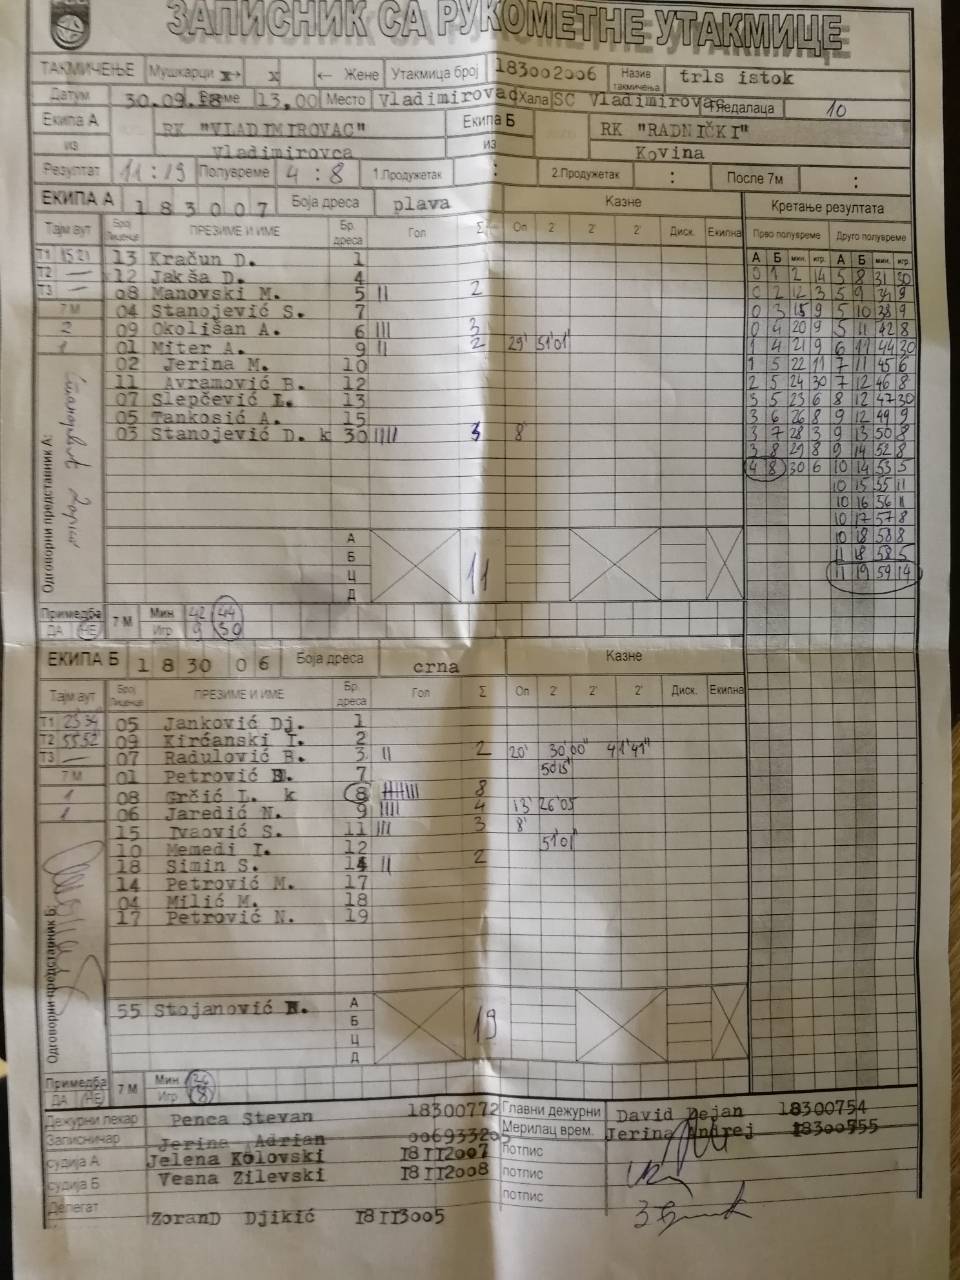 ЗАПИСНИК СА РУКОМЕТНЕ УТАКМИЦЕ
ТАКМИЧЕЊЕ Мушкарци x→ x ← Жене Утакмица број 183002006 Назив такмичења trls istok
Датум 30.09.18 Време 13,00 Место Vladimirovac Хала SC Vladimirovac Гледалаца 10
Екипа А RK "VLADIMIROVAC" Екипа Б RK "RADNIČKI"
из Vladimirovca из Kovina
Резултат 11:19 Полувреме 4:8 1.Продужетак : 2.Продужетак : После 7м :
ЕКИПА А 183007 Боја дреса plava Казне Кретање резултата
Тајм аут Број Лиценце ПРЕЗИМЕ И ИМЕ Бр. дреса Гол Σ Оп 2' 2' 2' Диск. Екипна Прво полувреме Друго полувреме
А Б мин. игр. А Б мин. игр.
Т1 15 21 13 Kračun D. 1 0 1 2 14 5 8 31 30
Т2 — 12 Jakša D. 4 0 2 12 3 5 9 34 9
Т3 — 08 Manovski M. 5 || 2 0 3 15 9 5 10 38 9
7 М 04 Stanojević S. 7 0 4 20 9 5 11 42 8
2 09 Okolišan A. 6 ||| 3 1 4 21 9 6 11 44 30
1 01 Miter A. 9 || 2 29' 51'01" 1 5 22 11 7 11 45 6
02 Jerina M. 10 2 5 24 30 7 12 46 8
11 Avramović B. 12 3 5 23 6 8 12 47 30
07 Slepčević L. 13 3 6 26 8 9 12 49 9
05 Tankosić A. 15 3 7 28 3 9 13 50 8
03 Stanojević D. k 30 |||| 3 8' 3 8 29 8 9 14 52 8
4 8 30 6 10 14 53 5
10 15 55 11
10 16 56 11
10 17 57 8
10 18 58 8
11 18 58 5
11 19 59 14
Одговорни представник А:
А
Б
Ц
Д
11
Примедба 7 М Мин 42 44
ДА НЕ Игр 9 30
ЕКИПА Б 183006 Боја дреса crna Казне
Тајм аут Број Лиценце ПРЕЗИМЕ И ИМЕ Бр. дреса Гол Σ Оп 2' 2' 2' Диск. Екипна
Т1 23 34 05 Janković Dj. 1
Т2 55 52 09 Kirćanski I. 2
Т3 — 07 Radulović B. 3 || 2 20' 30'00" 41'41"
7 М 01 Petrović 7 50'15"
1 08 Grčić L. k 8 |||||||| 8
1 06 Jaredić N. 9 |||| 4 13' 26'05
15 Ivaović S. 11 ||| 3 8'
10 Memedi I. 12 51'01"
18 Simin S. 14 || 2
14 Petrović M. 17
04 Milić M. 18
17 Petrović N. 19
Одговорни представник Б:
55 Stojanović А
Б
Ц
Д
19
Примедба 7 М Мин 26
ДА НЕ Игр 8
Дежурни лекар Penca Stevan 18300772 Главни дежурни David Dejan 18300754
Записничар Jerina Adrian Мерилац врем. Jerina Andrej 18300555
судија А Jelena Kolovski 18112007 потпис
судија Б Vesna Zilevski 18112008 потпис
Делегат ZoranD Djikić 18113005 потпис